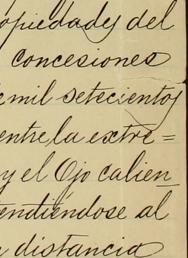 opiedades del
concesiones
mil setecientos
entre la extre=
y el Ojo calien
tendiendose al
distancia